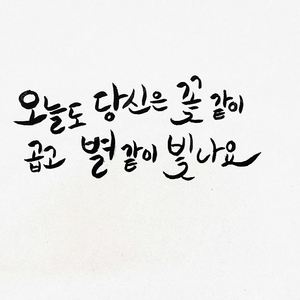 오늘도 당신은 꽃 같이
곱고 별 같이 빛나요